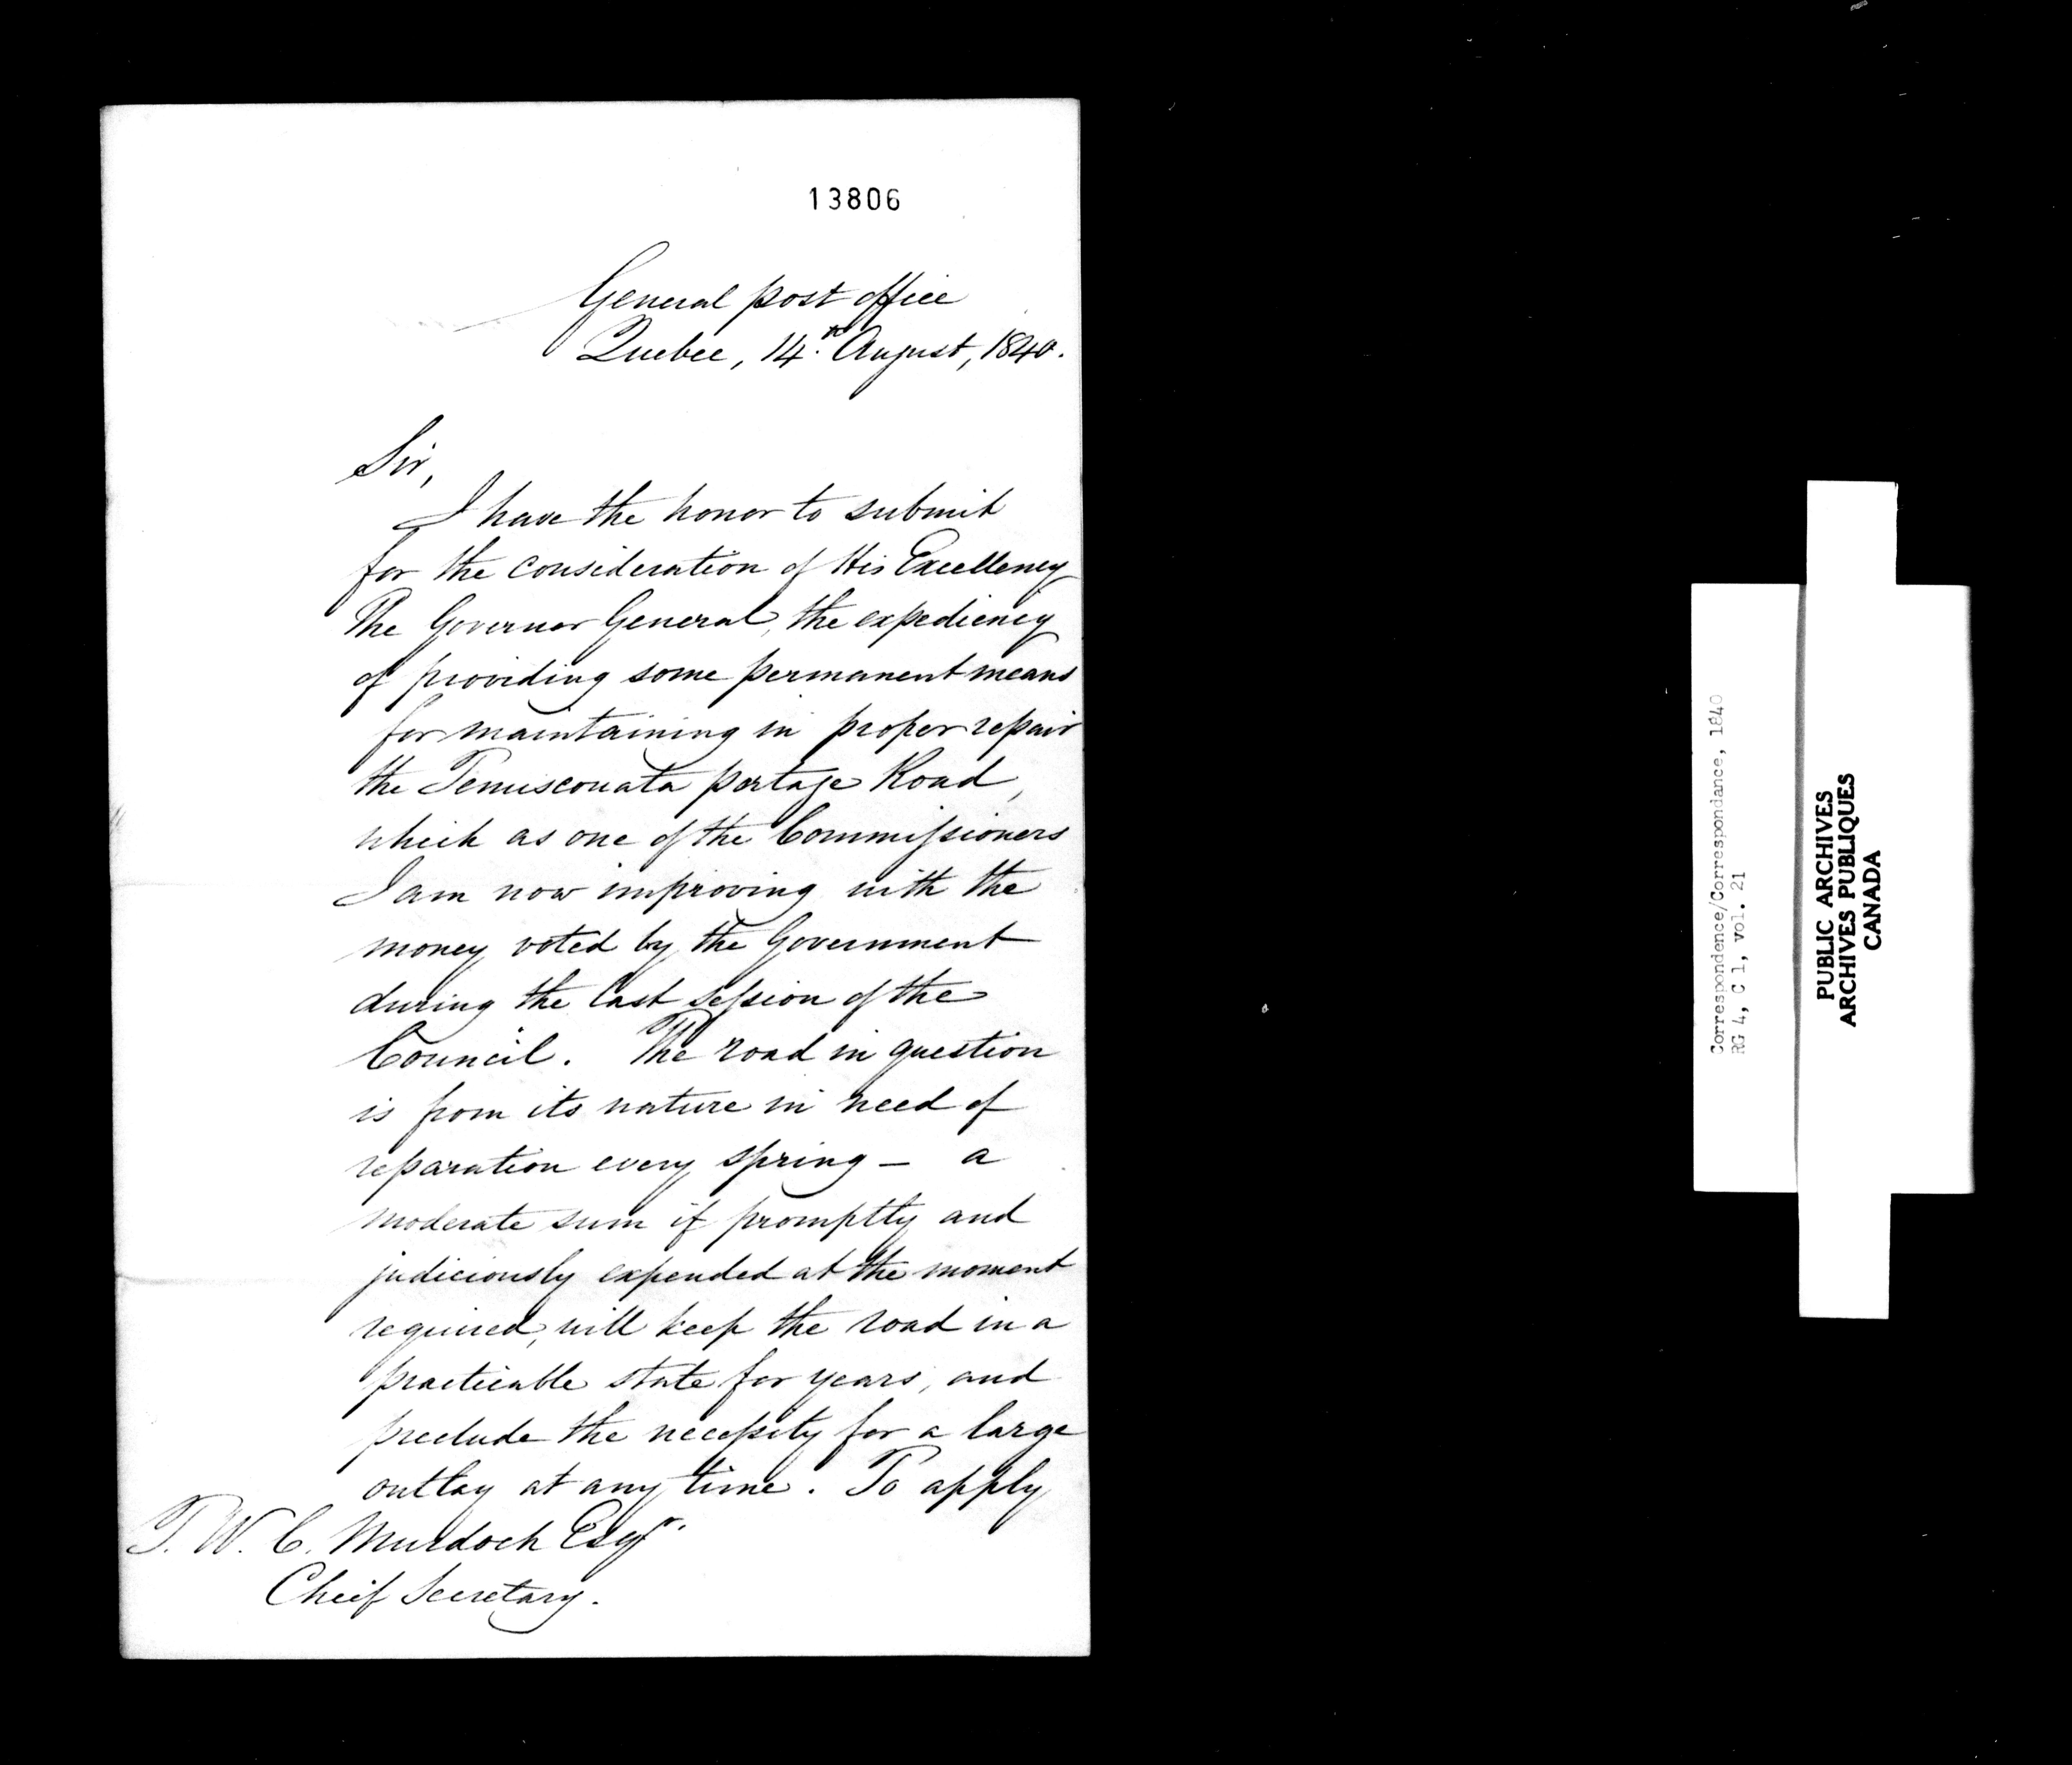 13806
General post office
Quebec, 14th August, 1840.
Sir,
I have the honor to submit
for the consideration of His Excellency
The Governor General, the expediency
of providing some permanent means
for maintaining in proper repair
the Temisconata portage Road,
which as one of the Commissioners
I am now improving with the
money voted by the Government
during the last session of the
Council. The road in question
is from its nature in need of
reparation every spring — a
moderate sum if promptly and
judiciously expended at the moment
required, will keep the road in a
practicable state for years, and
preclude the necessity for a large
outlay at any time. To apply
T. W. C. Murdoch Esqr.
Cheif Secretary.
Correspondence/Correspondance, 1840
RG 4, C 1, vol. 21
PUBLIC ARCHIVES
ARCHIVES PUBLIQUES
CANADA